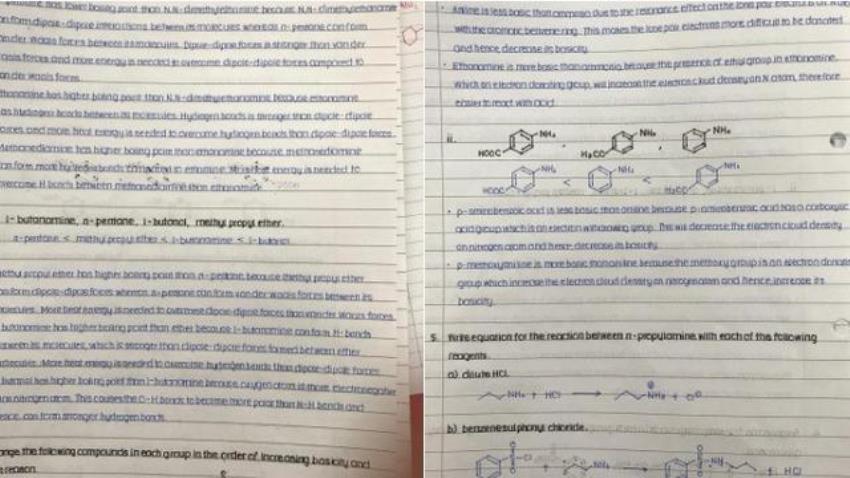 has lower boiling point than N,N-dimethylethanamine because N,N-dimethylethanamine
form dipole-dipole interactions between its molecules whereas n-pentane can form
van der Waals forces between its molecules. Dipole-dipole forces is stronger than van der
Waals forces and more energy is needed to overcome dipole-dipole forces compared to
van der Waals forces.
has higher boiling point than N,N-dimethylethanamine because
has hydrogen bonds between its molecules. Hydrogen bonds is stronger than dipole-dipole
forces and more heat energy is needed to overcome hydrogen bonds than dipole-dipole forces.
has higher boiling point than ethanamine because
form more energy is needed to
overcome H bonds between than ethanamine.
1-butanamine, n-pentane, 1-butanol, methyl propyl ether.
n-pentane < methyl propyl ether < 1-butanamine < 1-butanol
methyl propyl ether has higher boiling point than n-pentane because methyl propyl ether
can form dipole-dipole forces whereas n-pentane can form van der Waals forces between its
molecules. More heat energy is needed to overcome dipole-dipole forces than van der Waals forces.
1-butanamine has higher boiling point than ether because 1-butanamine can form H-bonds
between its molecules, which is stronger than dipole-dipole forces formed between ether
molecules. More heat energy is needed to overcome hydrogen bonds than dipole-dipole forces.
1-butanol has higher boiling point than 1-butanamine because oxygen atom is more electronegative
than nitrogen atom. This causes the O-H bonds to become more polar than N-H bonds and
hence, can form stronger hydrogen bonds.
ange the following compounds in each group in the order of increasing basicity and
reason.
• Aniline is less basic than ammonia due to the resonance effect on the lone pair
with the aromatic benzene ring. This makes the lone pair electrons more difficult to be donated
and hence decrease its basicity.
• Ethanamine is more basic than ammonia because the presence of ethyl group in ethanamine,
which an electron donating group, will increase the electron cloud density on N atom, therefore
easier to react with acid.
ii.
HOOC NH₂ , H₃CO NH₂ , NH₂
HOOC NH₂ < NH₂ < H₃CO NH₂
• p-aminobenzoic acid is less basic than aniline because p-aminobenzoic acid has a carboxylic
acid group which is an electron withdrawing group. This will decrease the electron cloud density
on nitrogen atom and hence decrease its basicity.
• p-methoxyaniline is more basic than aniline because the methoxy group is an electron donating
group which increase the electron cloud density on nitrogen atom and hence, increase its
basicity.
5. Write equation for the reaction between n-propylamine with each of the following
reagents.
a) dilute HCl.
NH₂ + HCl → NH₃ + Cl
b) benzenesulphonyl chloride.
Cl + NH₂ → NH + HCl